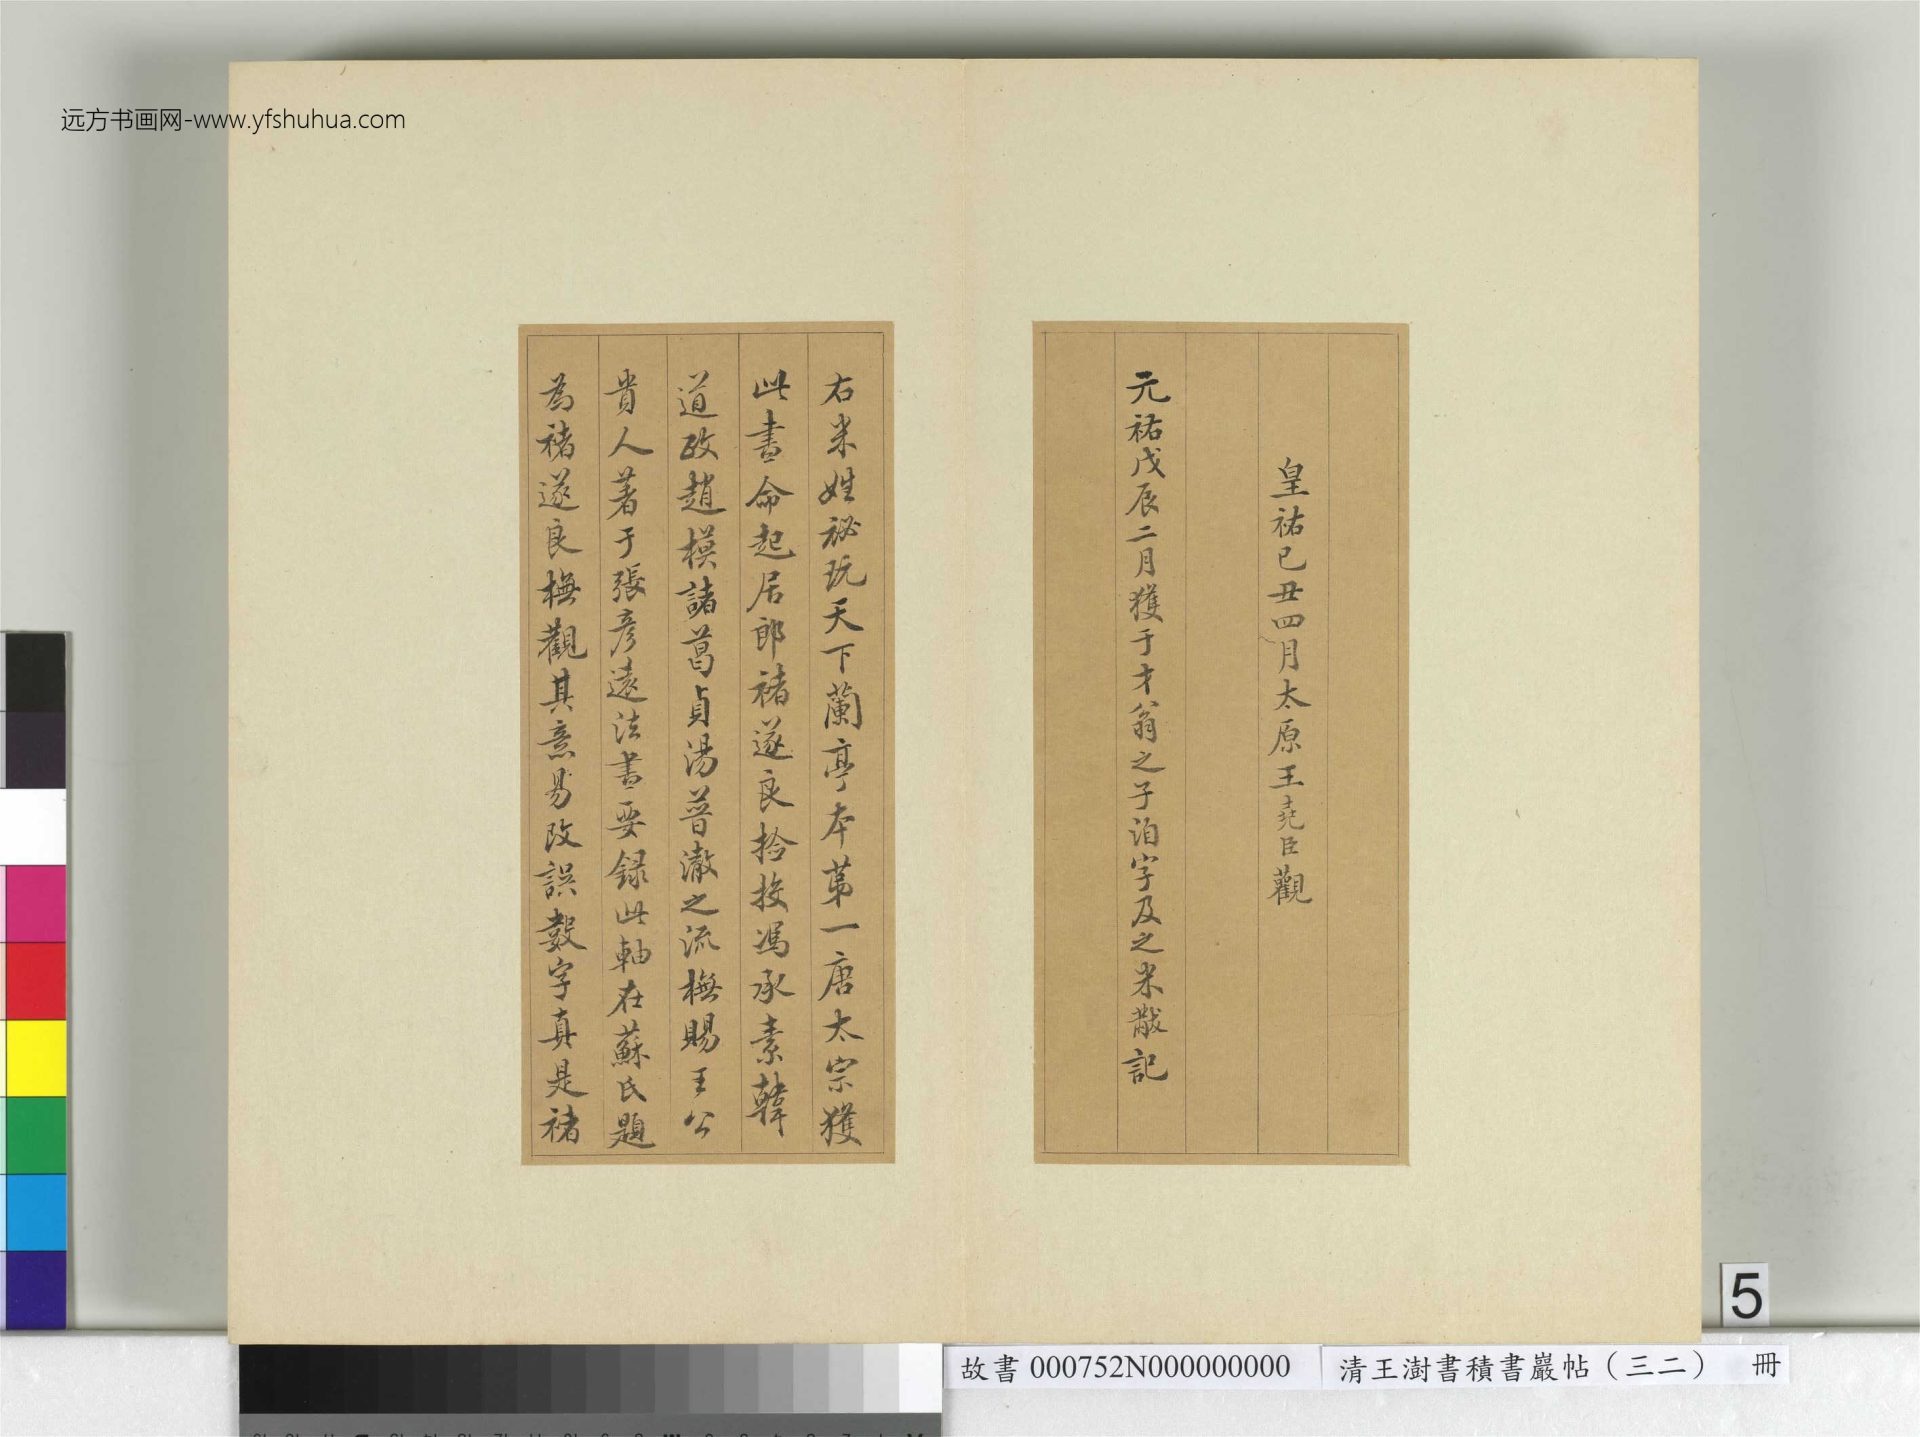 远方书画网-www.yfshuhua.com
皇祐己丑四月太原王堯臣觀
元祐戊辰二月獲于才翁之子洎字及之米黻記
右米姓祕玩天下蘭亭本第一唐太宗獲
此書命起居郎褚遂良撿挍馮承素韓
道政趙模諸葛貞湯普澈之流橅賜王公
貴人著于張彥遠法書要録此軸在蘇氏題
為褚遂良橅觀其意易改誤數字真是褚
5
故書000752N000000000
清王澍書積書巖帖（三二） 冊